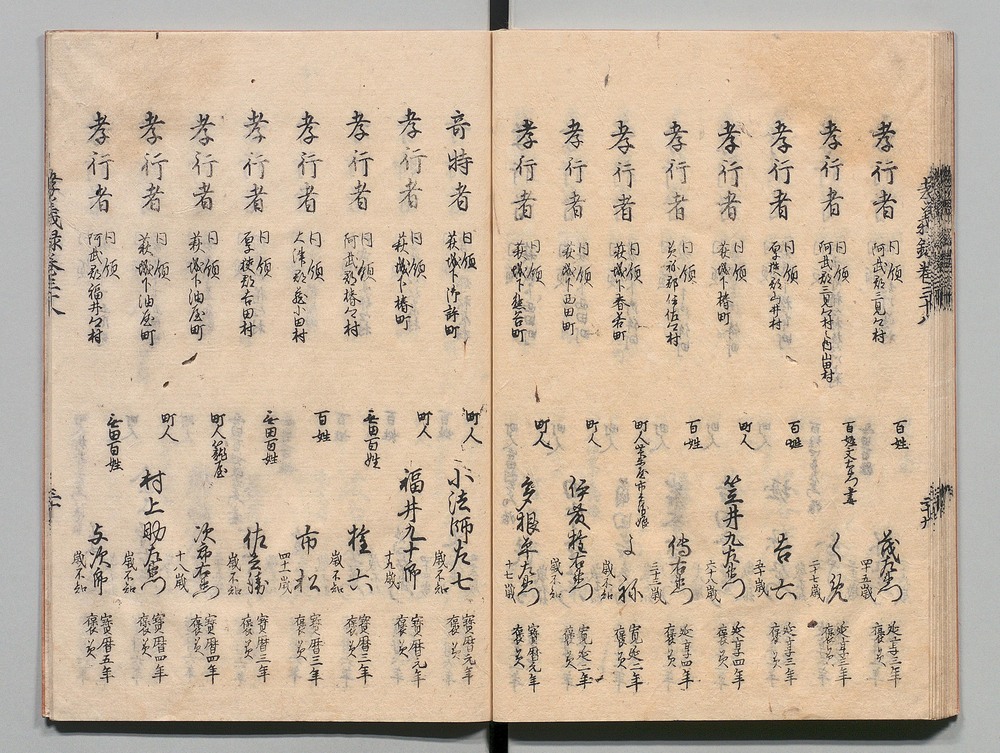 孝行者
同領
阿武郡三見村
百姓
茂左衛門
四五歳
延享三年
褒美
孝行者
同領
阿武郡三見村之内山田村
百姓
妻
二十七歳
延享三年
褒美
孝行者
同領
厚狭郡山井村
百姓
吉六
歳
延享三年
褒美
孝行者
同領
萩城下椿町
町人
笠井九左衛門
六十八歳
延享四年
褒美
孝行者
同領
美祢郡伊佐村
百姓
伝右衛門
三十三歳
延享四年
褒美
孝行者
同領
萩城下春若町
町人
よ祢
歳不知
寛延二年
褒美
孝行者
同領
萩城下西田町
町人
伊藤権右衛門
歳不知
寛延二年
褒美
孝行者
同領
萩城下熊谷町
町人
多根平左衛門
十七歳
寳暦元年
褒美
奇特者
同領
萩城下津守町
町人
小法師九七
歳不知
寳暦元年
褒美
孝行者
同領
萩城下椿町
町人
福井九十郎
十五歳
寳暦元年
褒美
孝行者
同領
阿武郡椿村
無田百姓
権六
歳不知
寳暦三年
褒美
孝行者
同領
大津郡小田村
百姓
市松
四十一歳
寳暦三年
褒美
孝行者
同領
厚狭郡吉田村
無田百姓
佐兵衛
歳不知
寳暦三年
褒美
孝行者
同領
萩城下油屋町
町人
次郎右衛門
十八歳
寳暦四年
褒美
孝行者
同領
萩城下油屋町
町人
村上助左衛門
歳不知
寳暦四年
褒美
孝行者
同領
阿武郡福井村
無田百姓
与次郎
歳不知
寳暦五年
褒美
孝義録巻三十八
三十